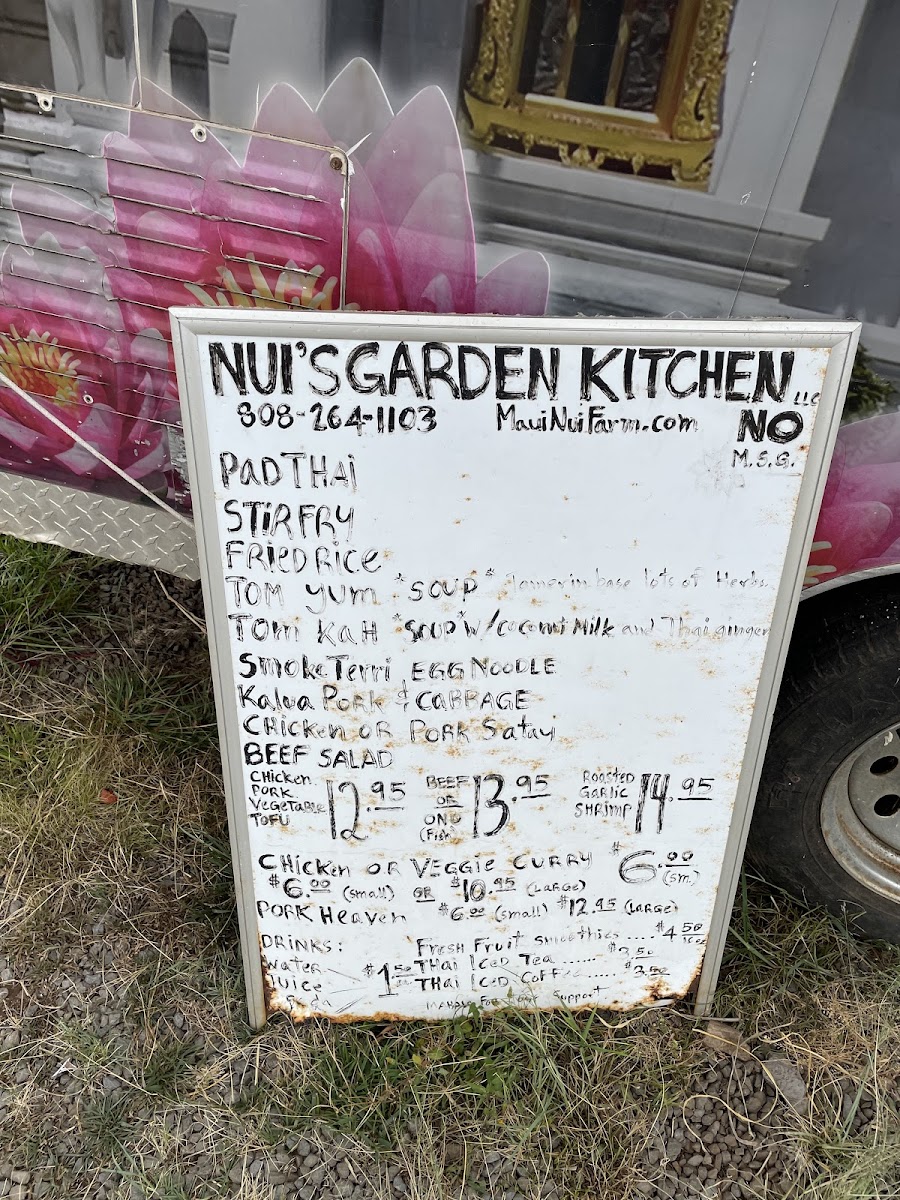 NUI'S GARDEN KITCHEN LLC
808-264-1103 MauiNuiFarm.com NO
M.S.G.
PAD THAI
STIR FRY
FRIED RICE
TOM YUM *SOUP* base lots of Herbs
TOM KAH *SOUP* W/COCONUT MILK and Thai ginger
Smoke Terri EGG NOODLE
Kalua Pork & CABBAGE
CHICKEN OR PORK Satay
BEEF SALAD
CHICKEN PORK VEGETABLE TOFU 12.95
BEEF OR ONO (Fish) 13.95
ROASTED GARLIC SHRIMP 14.95
CHICKEN OR VEGGIE CURRY $6.00 (sm.)
$6.00 (small) OR $10.95 (LARGE)
PORK Heaven $6.00 (small) $12.95 (LARGE)
DRINKS: FRESH FRUIT smoothies .... $4.50 16oz
Water THAI ICED TEA ...... $3.50
Juice $1.50 THAI ICED COFFEE ..... $3.50
Soda MAHALO FOR Support